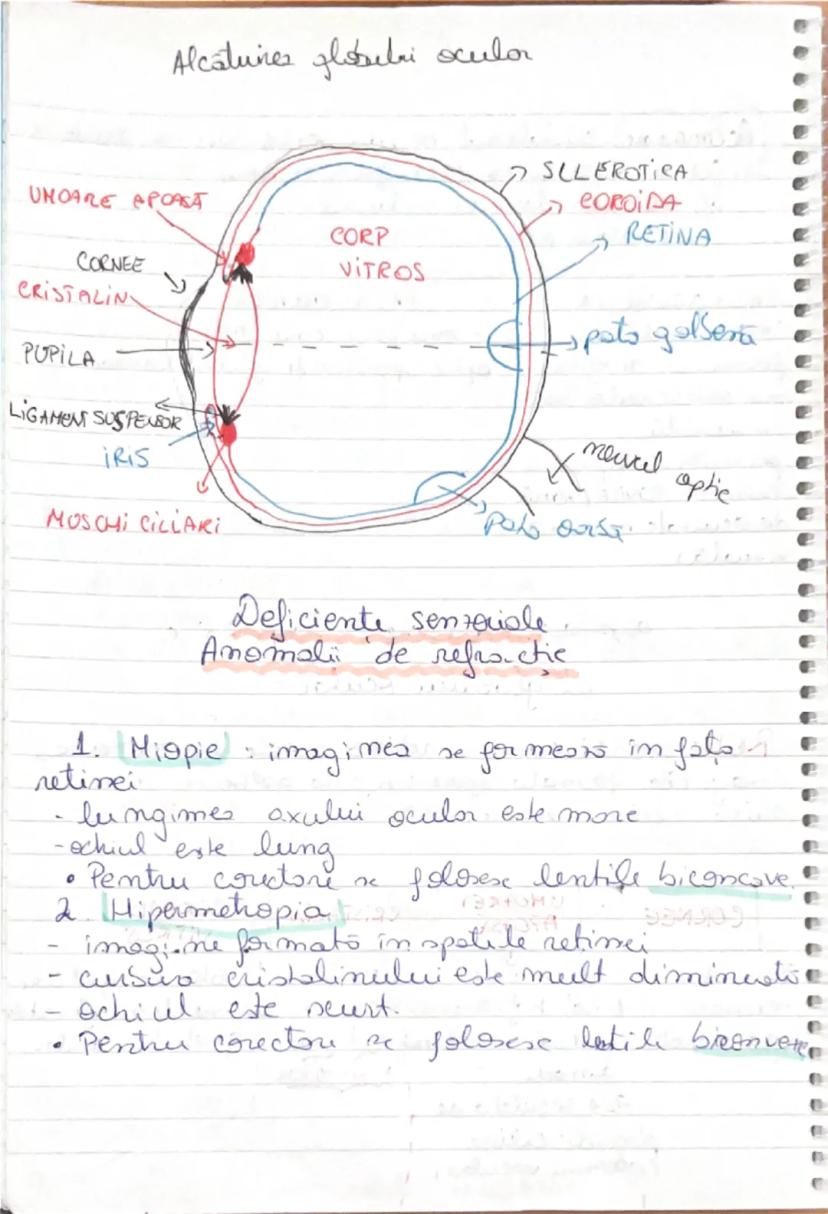 Alcătuirea globului ocular
SLLEROTICA
UMOARE APOASĂ
COROIDA
CORP
VITROS
RETINA
CORNEE
CRISTALIN
pata galbenă
PUPILA
LIGAMENT SUSPENSOR
IRIS
nervul optic
MUSCHI CILIARI
pata oarbă
Deficiente senzoriale.
Anomalii de refractie
1. Miopie : imaginea se formează în fața
retinei
- lungimea axului ocular este mare
- ochiul este lung
• Pentru corectare se folosesc lentile biconcave.
2. Hipermetropia
- imagine formată în spatele retinei
- curbura cristalinului este mult diminuată
- ochiul este scurt.
• Pentru corectare se folosesc letile biconvexe